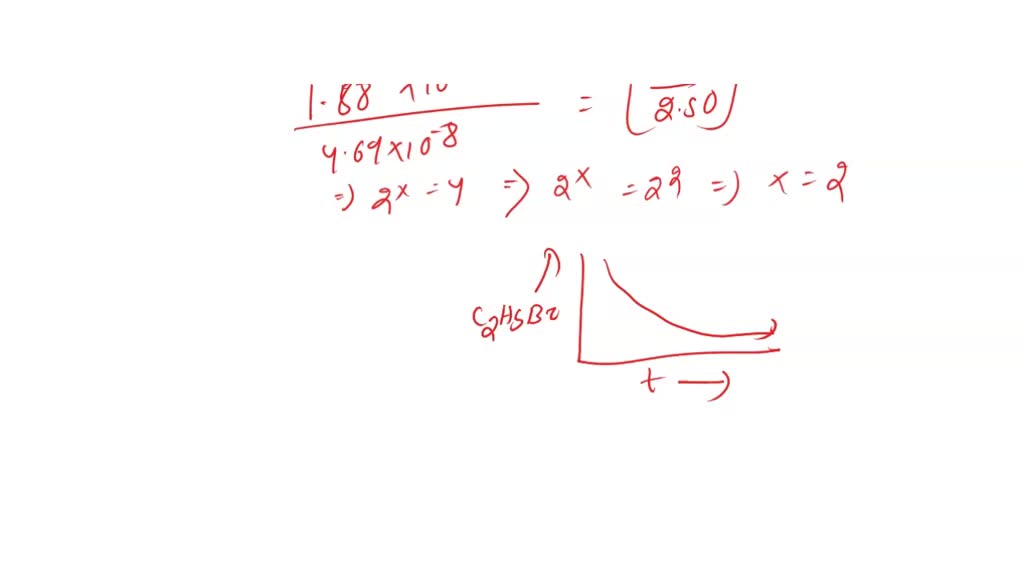 1.88 ×10
4.69×10-8 = (2.50)
=) 2x = 4 =) 2x = 22 =) x = 2
C2H5Br
t